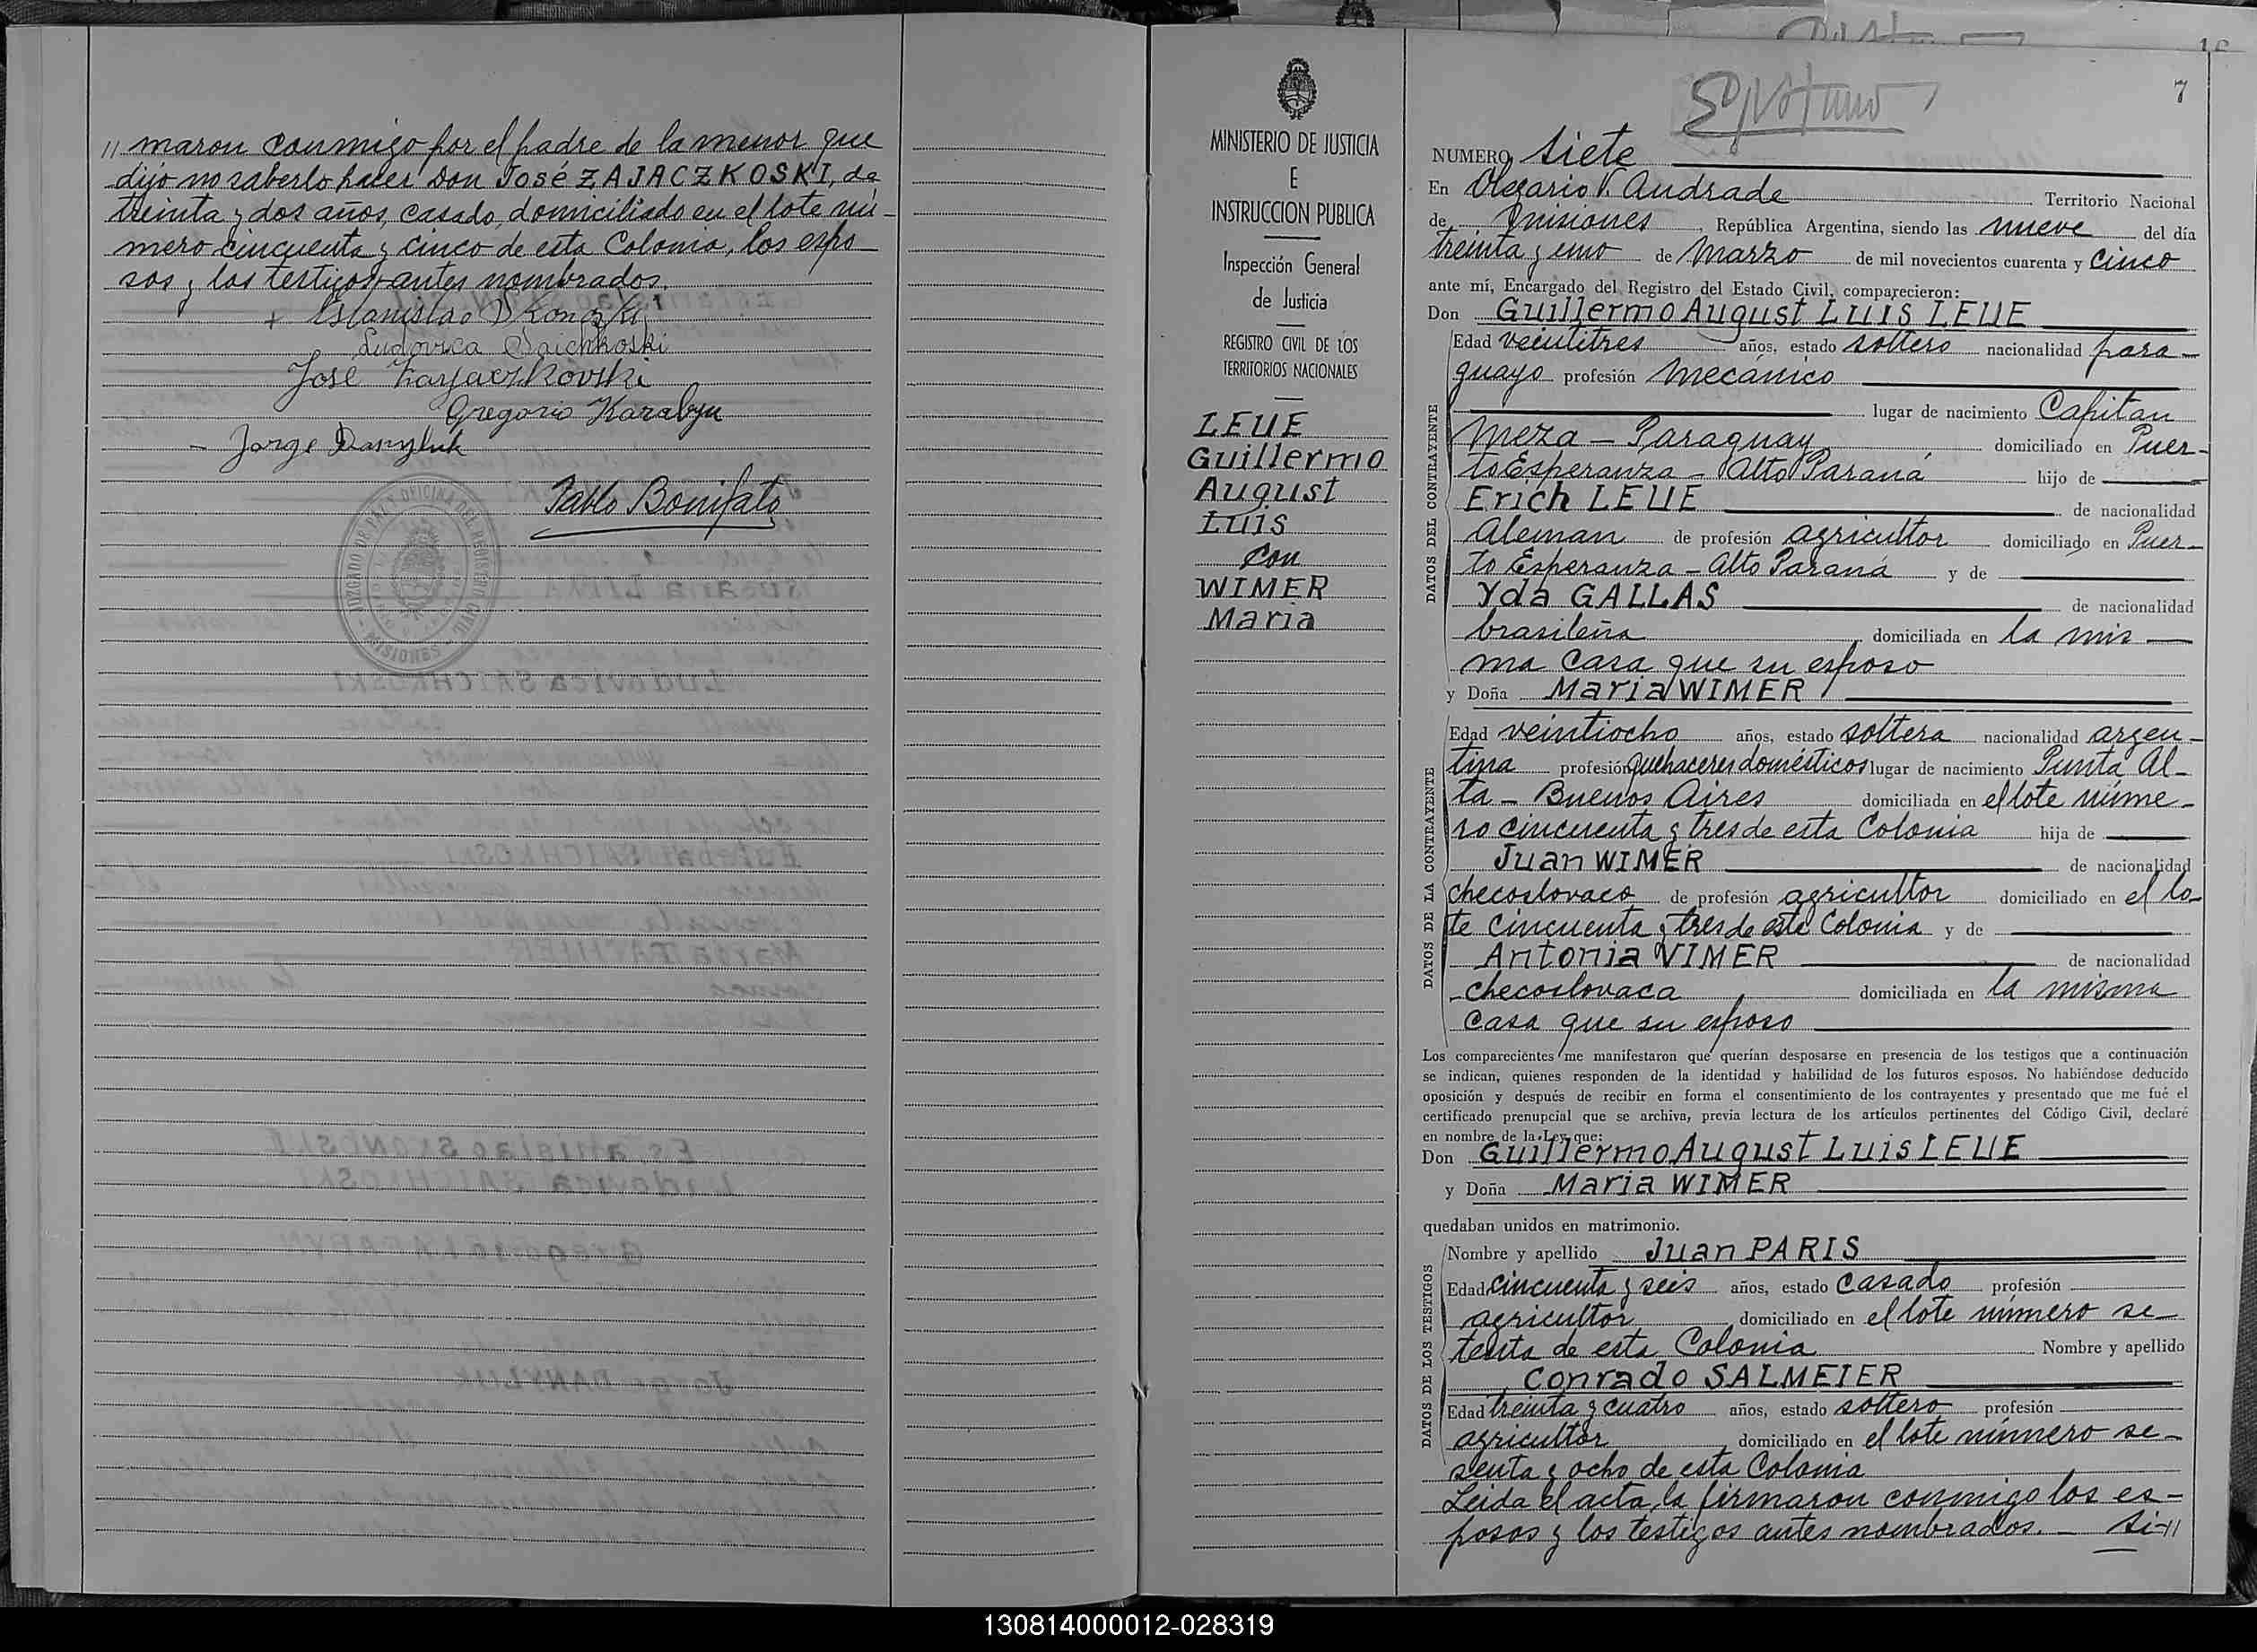 // maron conmigo por el padre de la menor que
dijo no saberlo hacer Don José ZAJACZKOSKI, de
treinta y dos años, casado, domiciliado en el lote nú-
mero cincuenta y cinco de esta Colonia, los espo
sos y los testigos antes nombrados.
+ Estanislao Skonezki
Ludovica Saichkoski
José Zarjaczkovski
Gregorio Karabyn
- Jorge Danyluk
Pablo Bonifato
JUZGADO DE PAZ Y OFICINA DEL REGISTRO CIVIL
- MISIONES -
MINISTERIO DE JUSTICIA
E
INSTRUCCION PUBLICA
Inspección General
de Justicia
REGISTRO CIVIL DE LOS
TERRITORIOS NACIONALES
LEUE
Guillermo
August
Luis
Con
WIMER
Maria
7
NUMERO siete
En Olegario V. Andrade Territorio Nacional
de Misiones, República Argentina, siendo las nueve del día
treinta y uno de Marzo de mil novecientos cuarenta y cinco
ante mí, Encargado del Registro del Estado Civil, comparecieron:
Don Guillermo August LUIS LEUE
DATOS DEL CONTRAYENTE
Edad veintitres años, estado soltero nacionalidad para-
guayo profesión Mecánico
lugar de nacimiento Capitan
Meza - Paraguay domiciliado en Puer-
to Esperanza - Alto Paraná hijo de
Erich LEUE de nacionalidad
Aleman de profesión agricultor domiciliado en Puer-
to Esperanza - Alto Paraná y de
Yda GALLAS de nacionalidad
brasileña domiciliada en la mis
ma casa que su esposo
y Doña Maria WIMER
DATOS DE LA CONTRAYENTE
Edad veintiocho años, estado soltera nacionalidad argen-
tina profesión quehaceres domésticos lugar de nacimiento Punta Al-
ta - Buenos Aires domiciliada en el lote núme-
ro cincuenta y tres de esta Colonia hija de
Juan WIMER de nacionalidad
checoslovaco de profesión agricultor domiciliado en el lo-
te cincuenta y tres de esta Colonia y de
Antonia VIMER de nacionalidad
checoslovaca domiciliada en la misma
casa que su esposo
Los comparecientes me manifestaron que querían desposarse en presencia de los testigos que a continuación
se indican, quienes responden de la identidad y habilidad de los futuros esposos. No habiéndose deducido
oposición y después de recibir en forma el consentimiento de los contrayentes y presentado que me fué el
certificado prenupcial que se archiva, previa lectura de los artículos pertinentes del Código Civil, declaré
en nombre de la Ley que:
Don Guillermo August Luis LEUE
y Doña Maria WIMER
quedaban unidos en matrimonio.
DATOS DE LOS TESTIGOS
Nombre y apellido Juan PARIS
Edad cincuenta y seis años, estado casado profesión
agricultor domiciliado en el lote número se-
tenta de esta Colonia Nombre y apellido
Conrado SALMEIER
Edad treinta y cuatro años, estado soltero profesión
agricultor domiciliado en el lote número se-
senta y ocho de esta Colonia
Leida el acta, la firmaron conmigo los es-
posos y los testigos antes nombrados. - Si-//
130814000012-028319